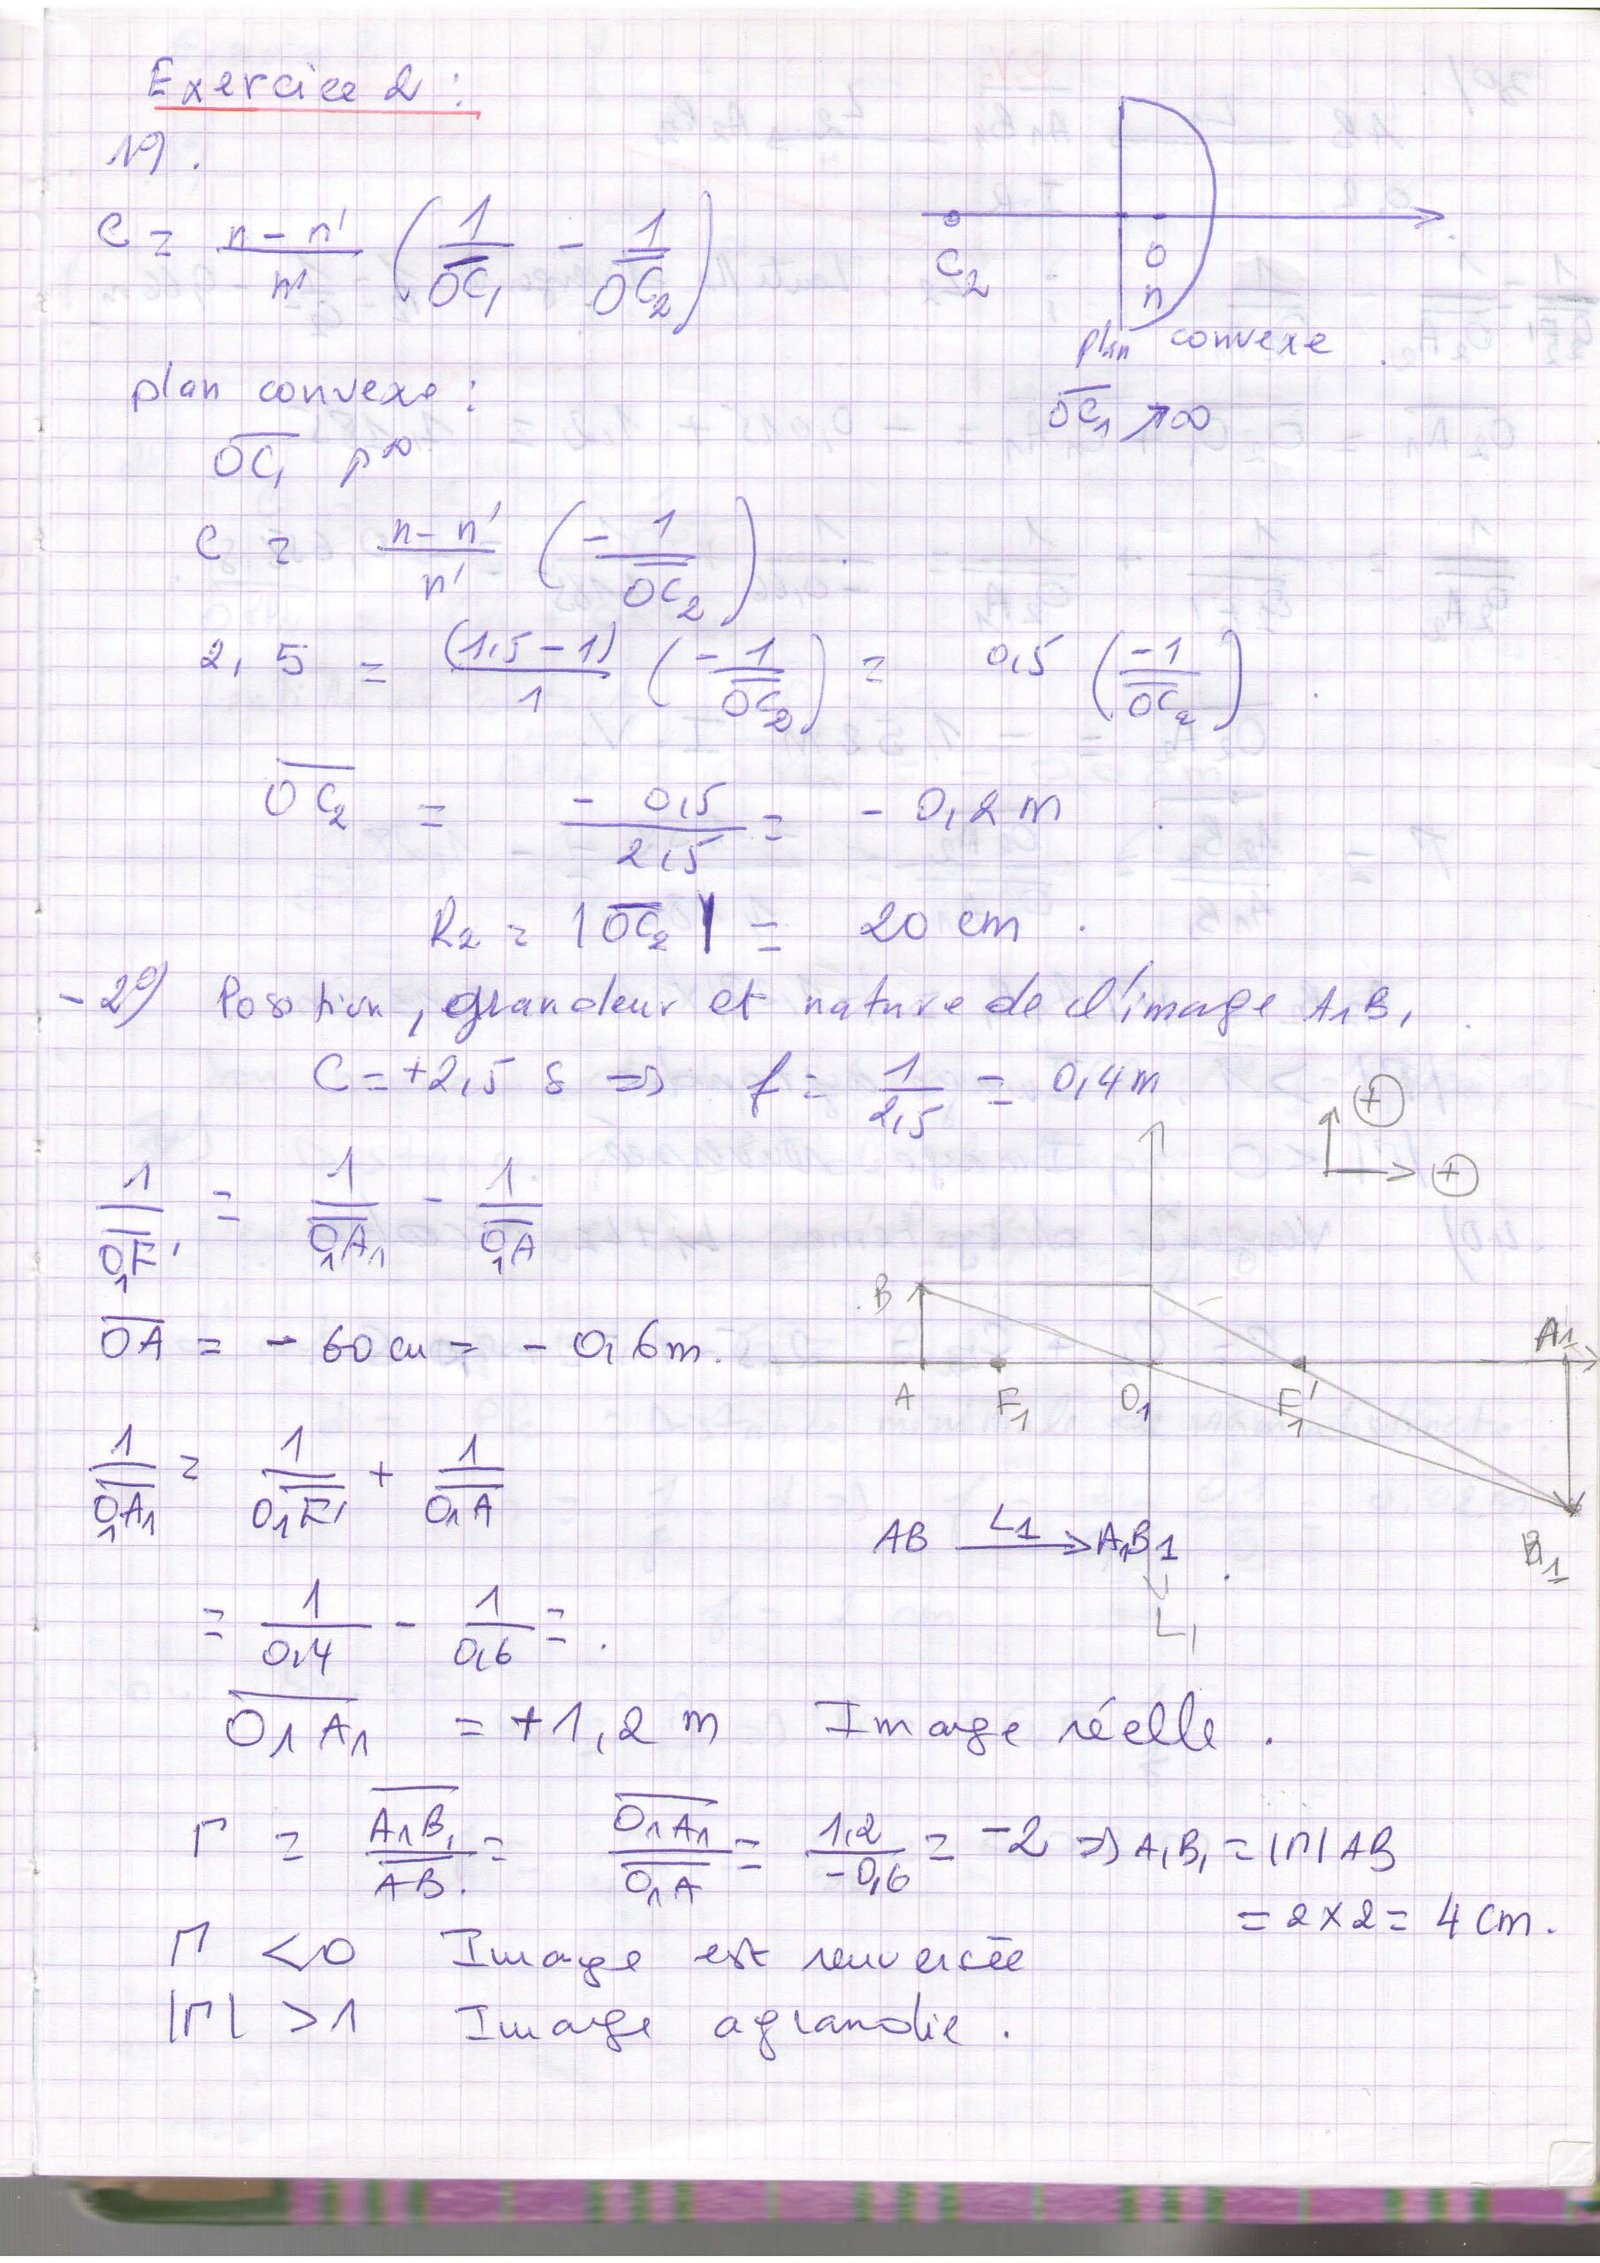 Exercice 2 :
1°).
C = (n - n')/n' (1/OC̅₁ - 1/OC̅₂)
C₂ O
n
plan convexe
O̅C̅₁ ↗ ∞
plan convexe :
O̅C̅₁ ↗ ∞
C = (n - n')/n' (- 1/O̅C̅₂)
2,5 = (1,5 - 1)/1 (- 1/O̅C̅₂) = 0,5 (-1/O̅C̅₂)
O̅C̅₂ = - 0,5/2,5 = - 0,2 m
R₂ = |O̅C̅₂| = 20 cm
- 2°) Position, grandeur et nature de l'image A₁B₁
C = +2,5 δ ⇒ f = 1/2,5 = 0,4 m
+
+
1/O̅₁F̅' = 1/O̅₁A̅₁ - 1/O̅₁A̅
O̅A̅ = - 60 cm = - 0,6 m.
B
A F₁ O₁ F₁' A₁
B₁
1/O̅₁A̅₁ = 1/O̅₁F̅' + 1/O̅₁A̅
AB —L₁→ A₁B₁
L₁
= 1/0,4 - 1/0,6 = .
O̅₁A̅₁ = +1,2 m Image réelle.
Γ = A̅₁B̅₁/A̅B̅ = O̅₁A̅₁/O̅₁A̅ = 1,2/-0,6 = -2 ⇒ A₁B₁ = |Γ| AB
= 2 × 2 = 4 cm.
Γ < 0 Image est renversée
|Γ| > 1 Image agrandie.